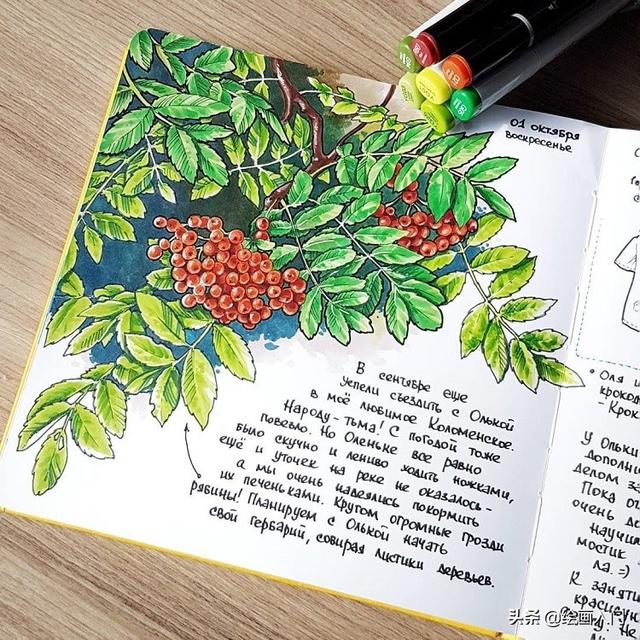 01 октября
воскресенье
В сентябре еще
успели съездить с Олькой
в моё любимое Коломенское.
Народу-тьма! С погодой тоже
повезло. Но Оленьке все равно
было скучно и лениво ходить ножками,
ещё и уточек на реке не оказалось-
а мы очень надеялись покормить
их печеньками. Кругом огромные грозди
рябины! Планируем с Олькой начать
свой гербарий, собирая листики деревьев.
• Оля и
крокод
- Крок
У Ольки
дополни
делом за
Пока
очень до
Научим
мостик
ла. =)
К заняти
красивун
Не
头条 @绘画入门